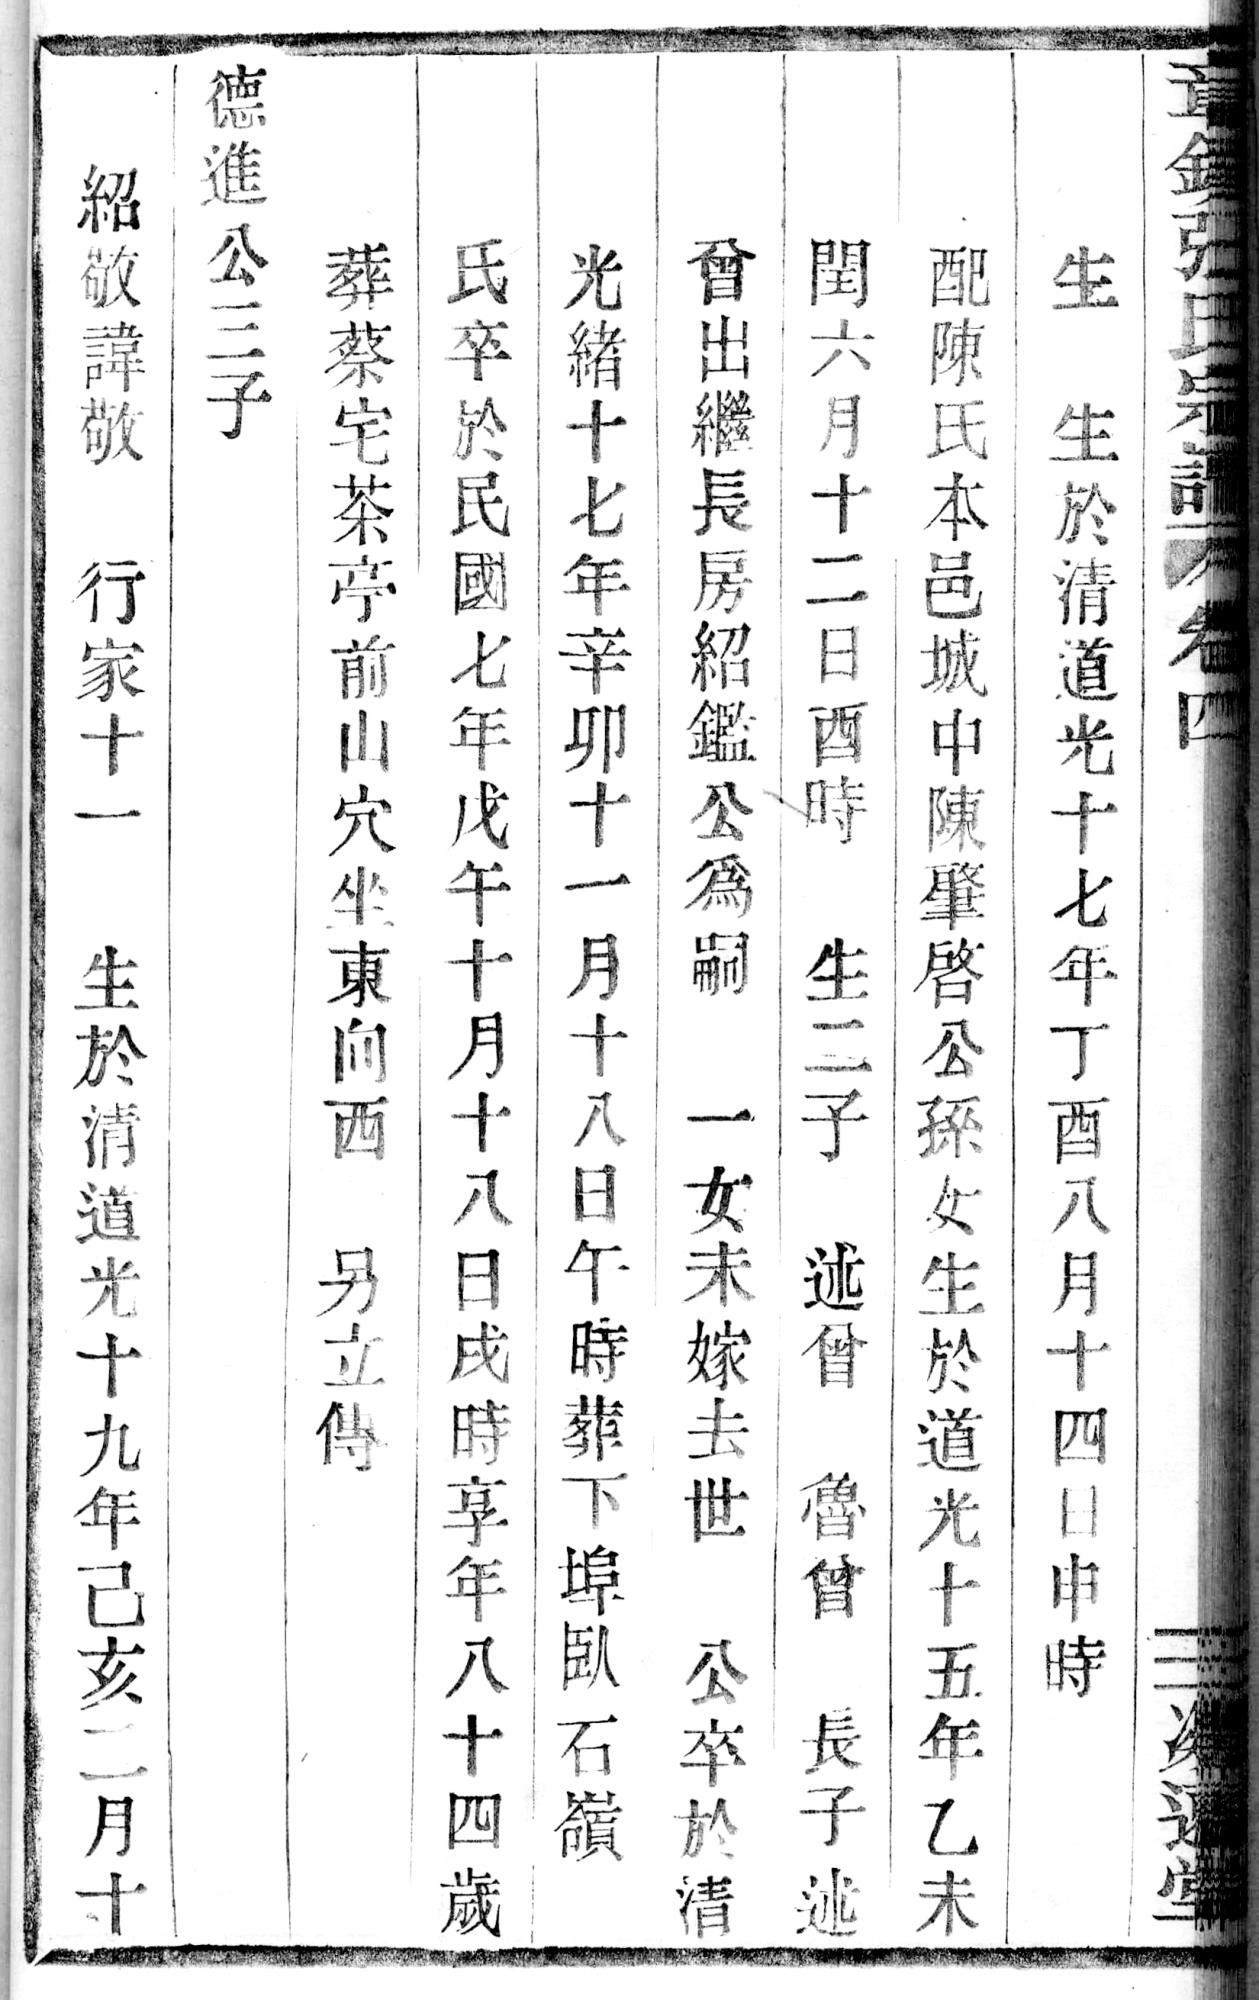 張氏宗譜 卷四
生 生於清道光十七年丁酉八月十四日申時
配陳氏本邑城中陳肇啓公孫女生於道光十五年乙未
閏六月十二日酉時 生二子 述曾 魯曾 長子述
曾出繼長房紹鑑公爲嗣 一女未嫁去世 公卒於清
光緒十七年辛卯十一月十八日午時葬下埠臥石嶺
氏卒於民國七年戊午十月十八日戌時享年八十四歲
葬蔡宅茶亭前山穴坐東向西 另立傳
德進公三子
紹敬諱敬 行家十一 生於清道光十九年己亥二月十